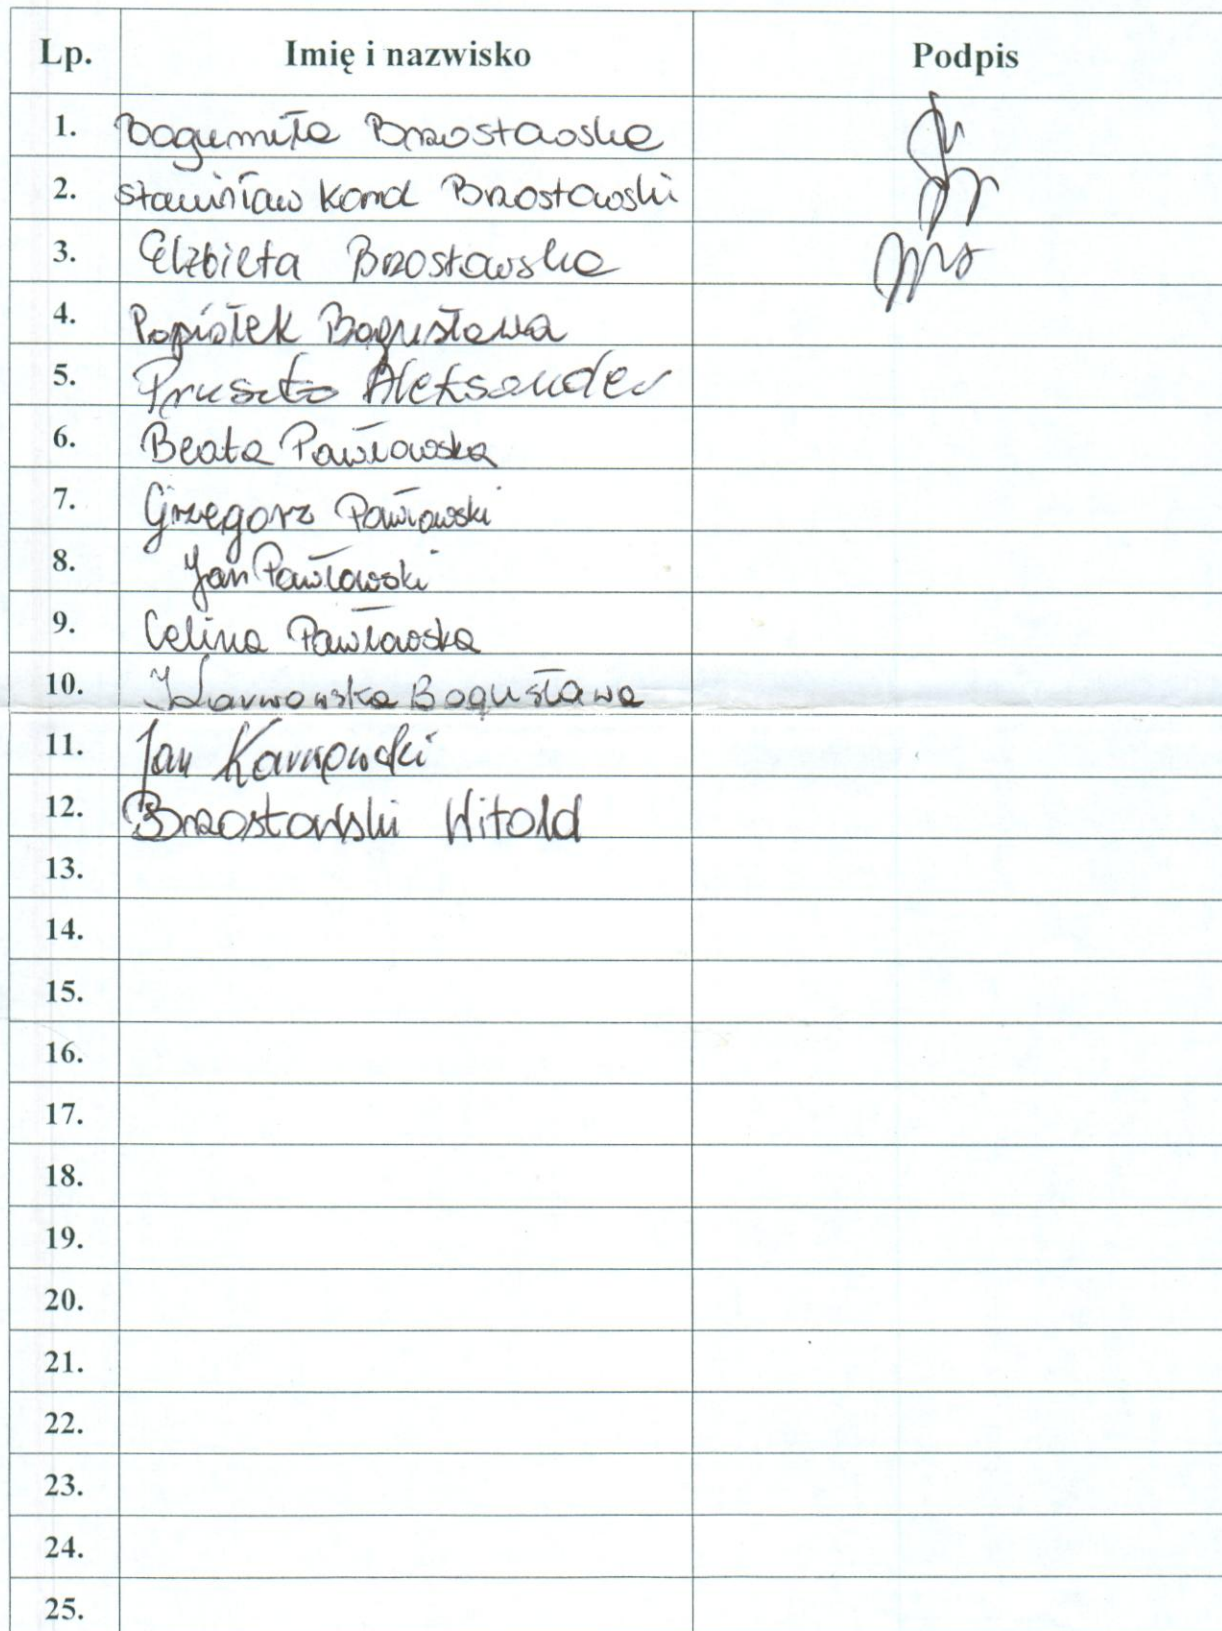 Lp. Imię i nazwisko Podpis
1. Bogumiła Brzostowska
2. Stanisław Karol Brzostowski
3. Elżbieta Brzostowska
4. Popiołek Bogusława
5. Aleksander
6. Beata Pawłowska
7. Grzegorz Pawłowski
8. Jan Pawłowski
9. Celina Pawłowska
10. Bogusława
11. Jan Karwowski
12. Brzostowski Witold
13.
14.
15.
16.
17.
18.
19.
20.
21.
22.
23.
24.
25.